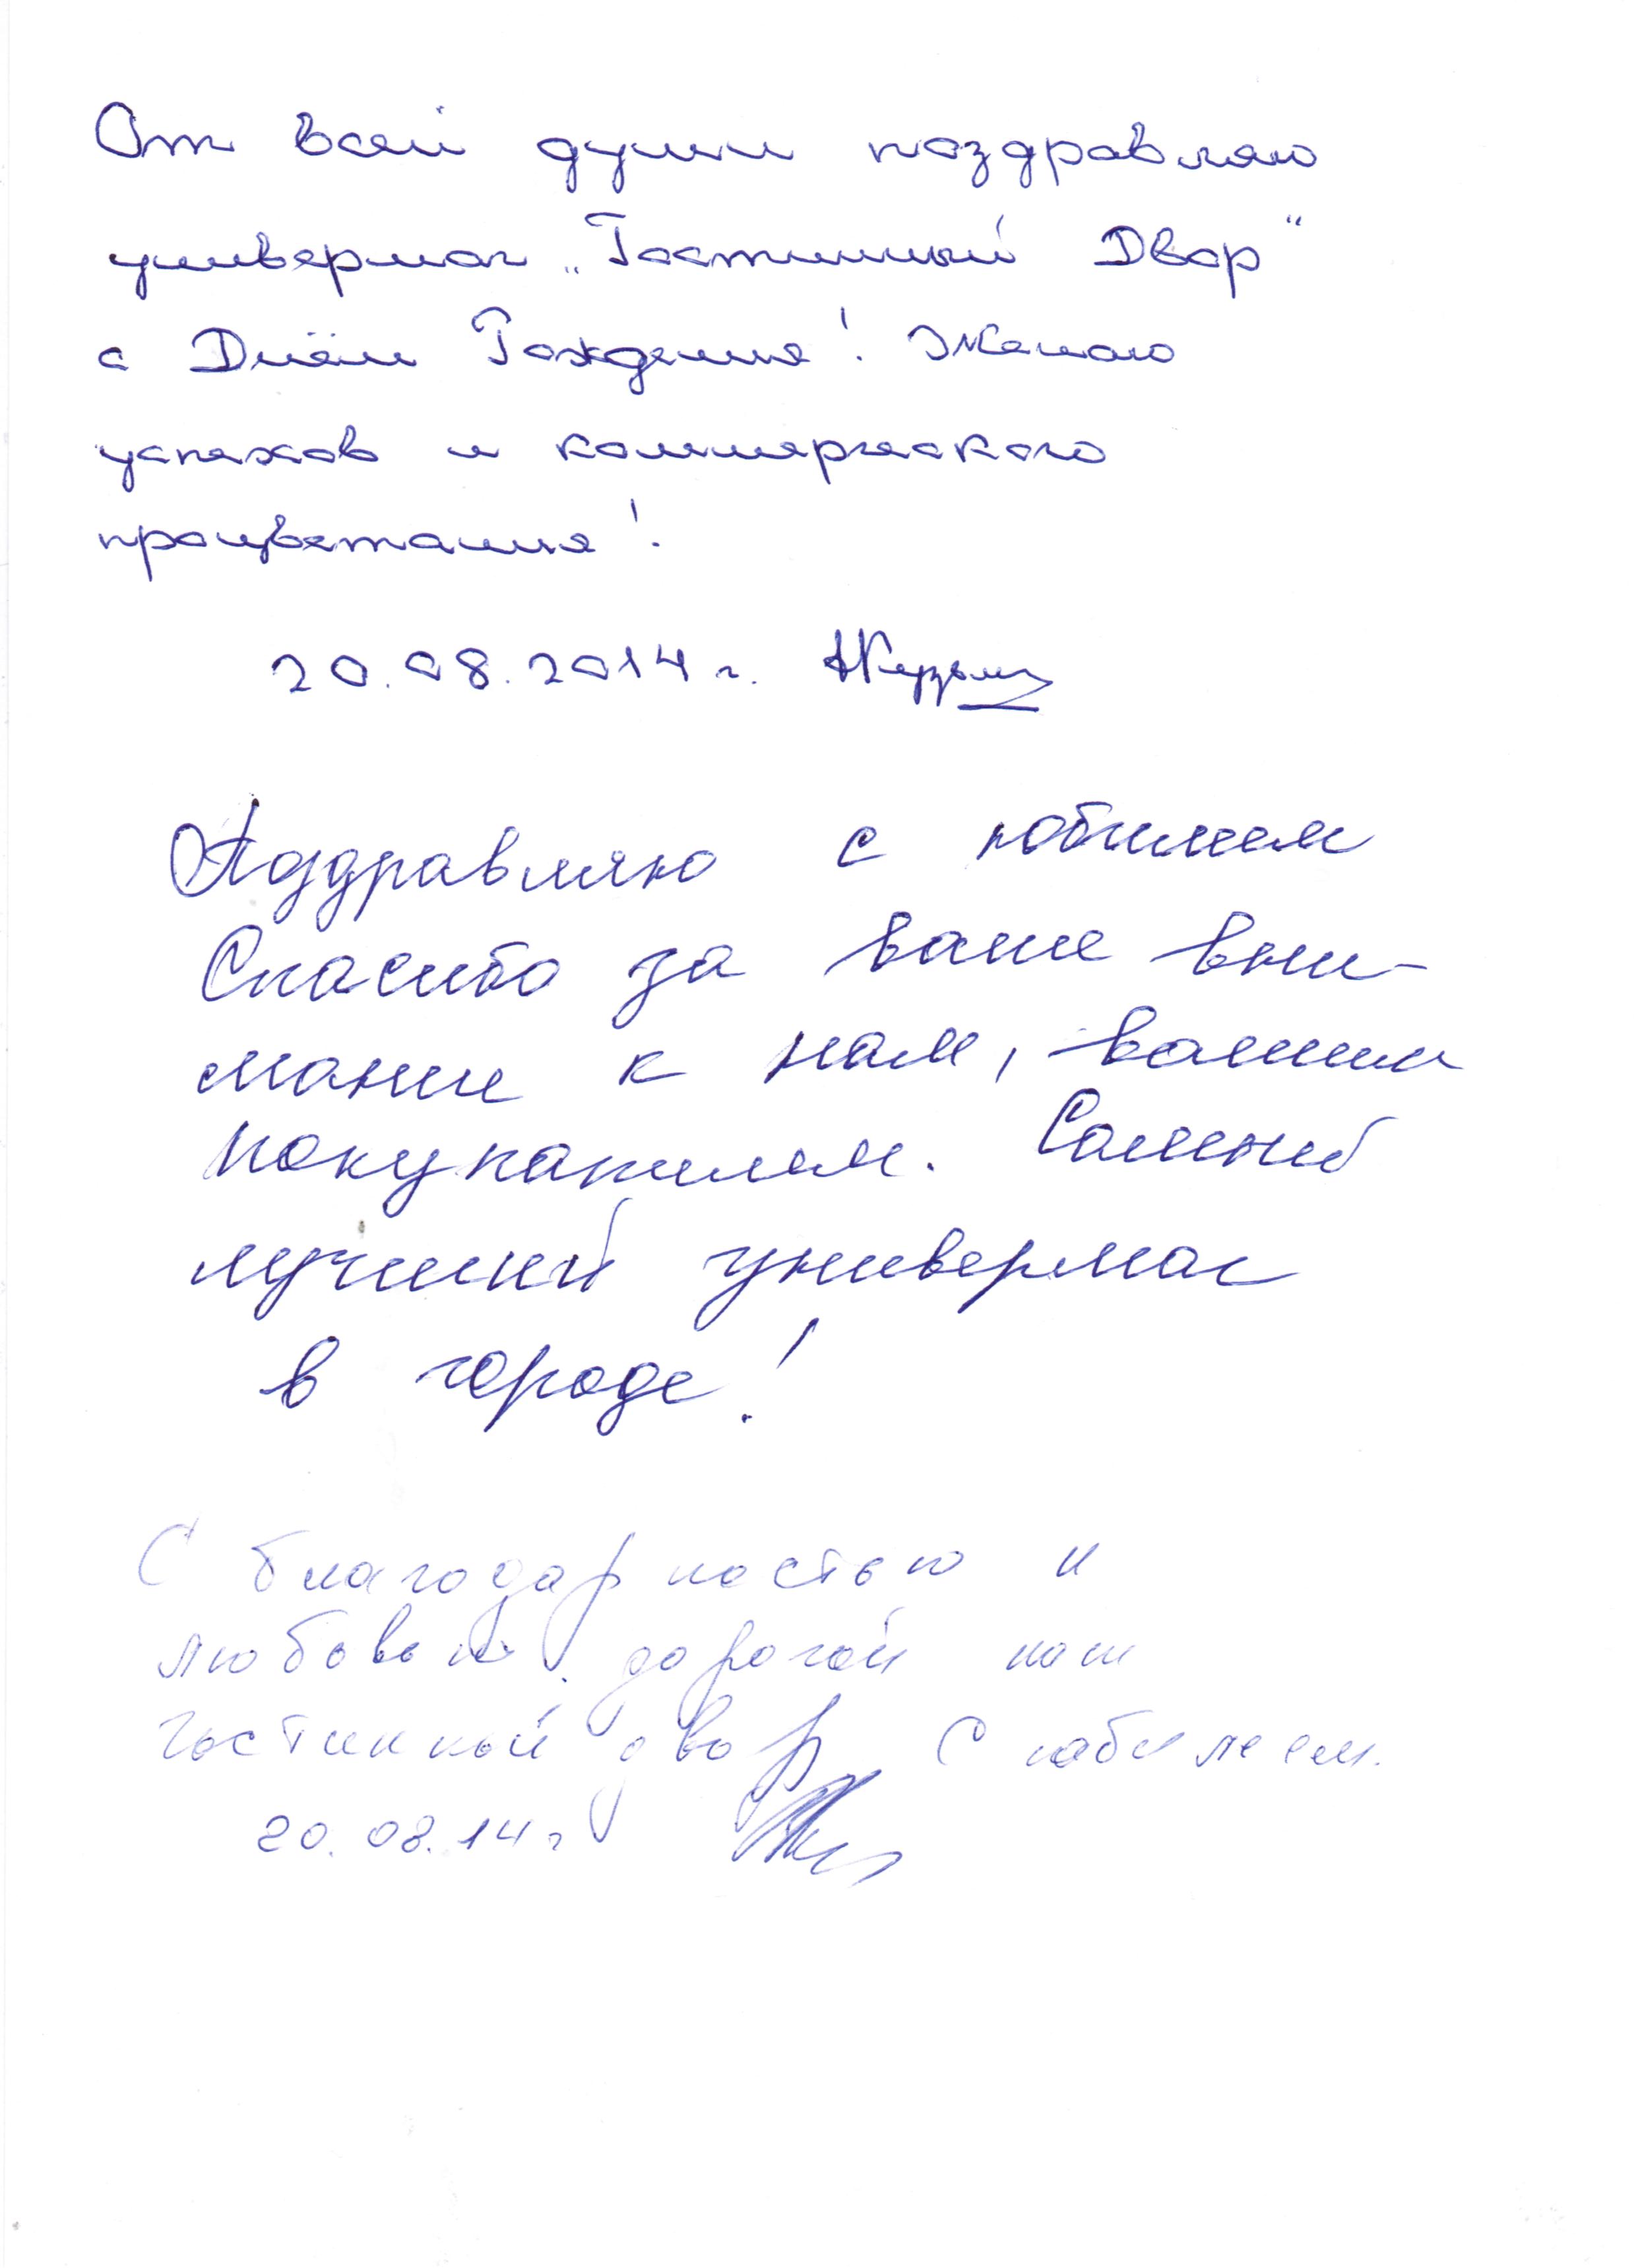 От всей души поздравляю
универмаг „Гостинный Двор“
с Днём Рождения! Желаю
успехов и коммерческого
процветания!
20.08.2014 г.
Поздравляю с юбилеем
Спасибо за ваше вни-
мание к нам, вашим
покупателям. Самый
лучший универмаг
в городе!
С благодарностью и
любовью дорогой наш
гостинный двор С юбилеем.
20.08.14 г